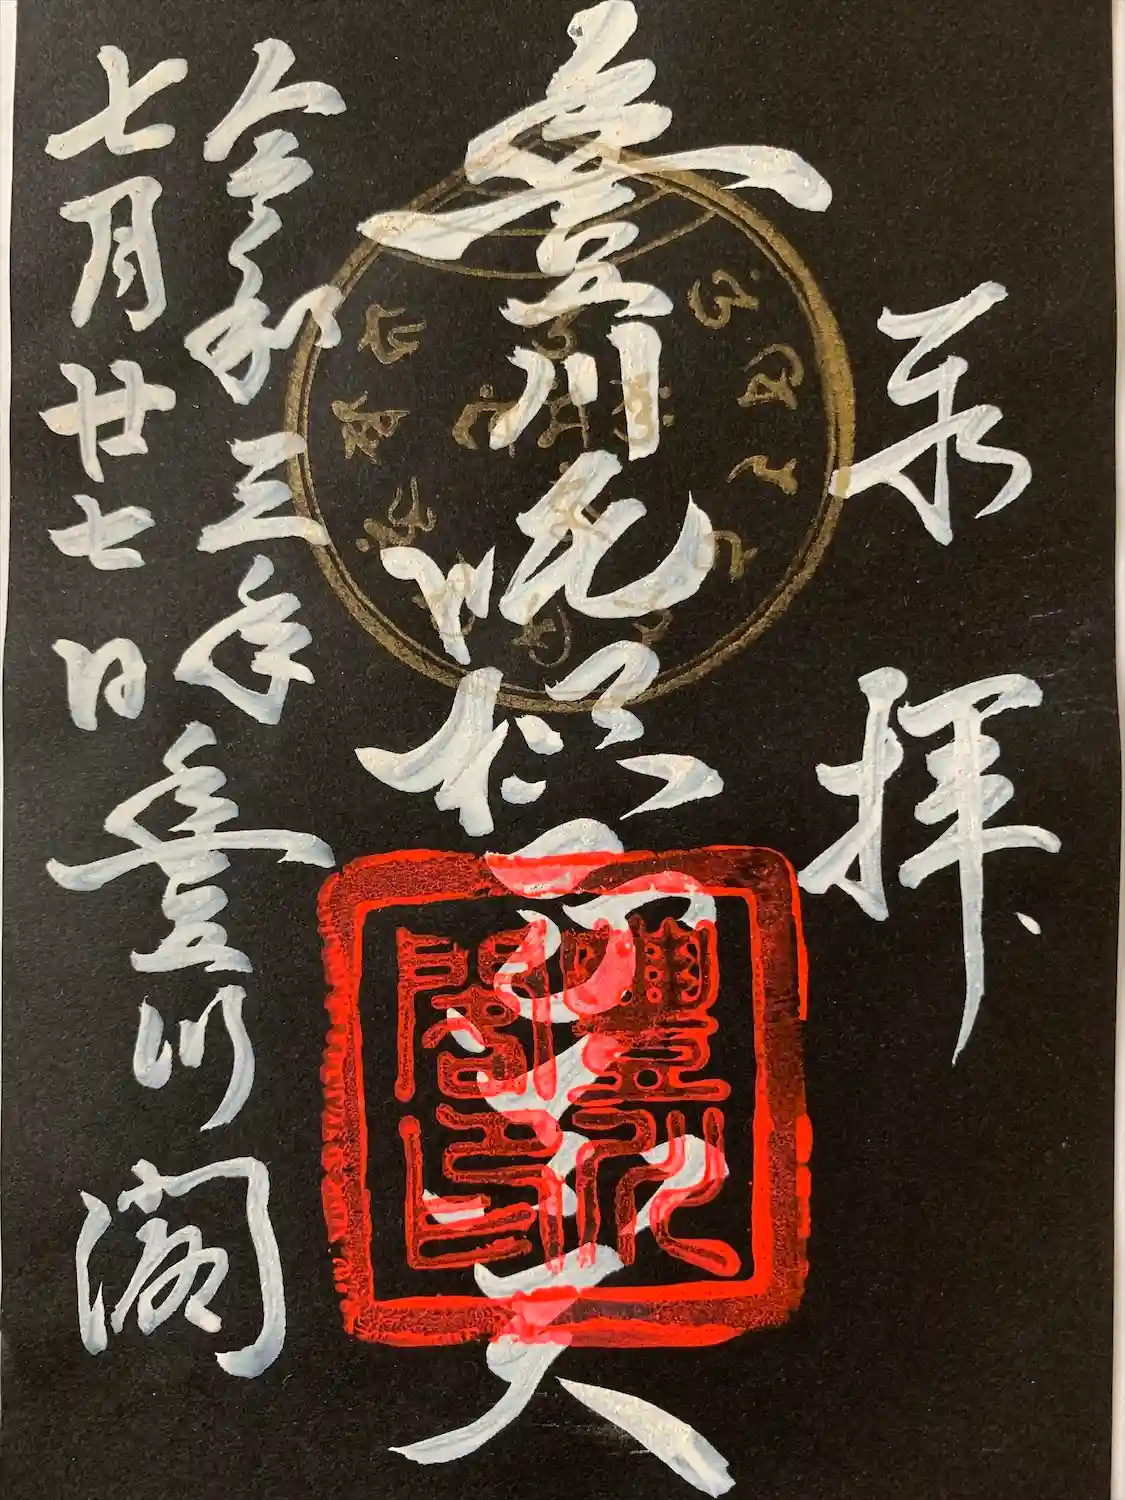 奉拝
豊川吒枳尼真天
令和三年
七月廿七日 豊川閣
豐川
閣印